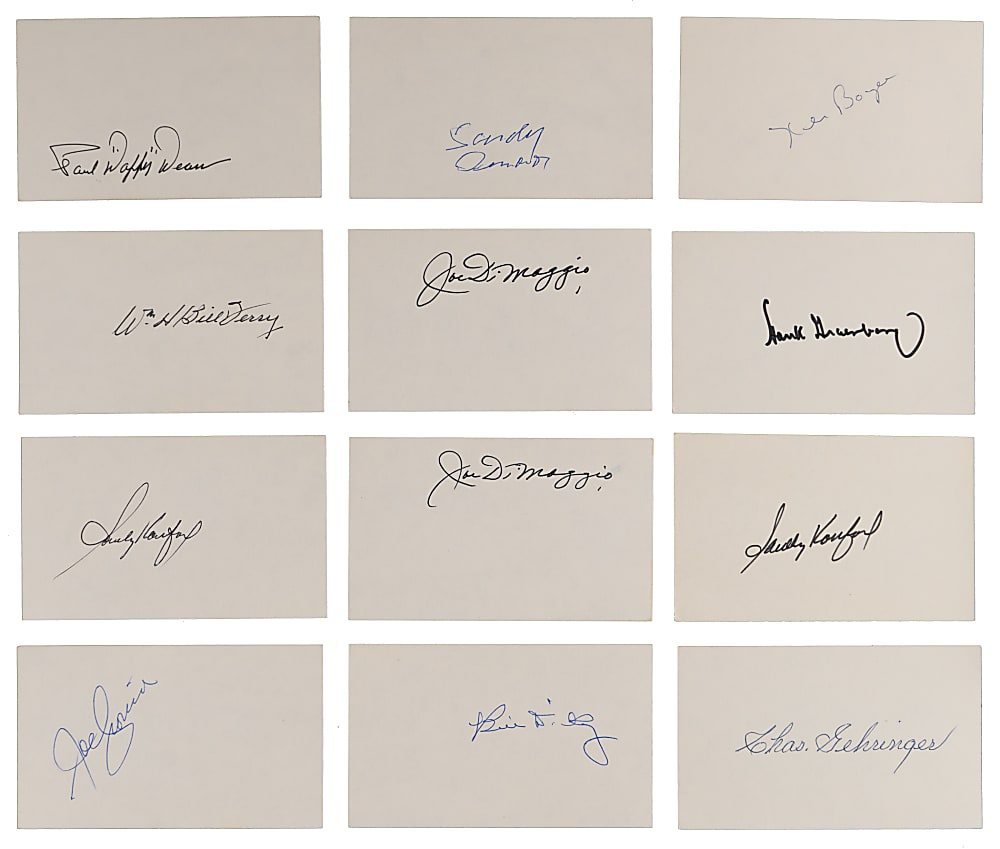 Paul "Daffy" Dean
Sandy
Amoros
Ken Boyer
Wm H Bill Terry
Joe DiMaggio
Hank Greenberg
Sandy Koufax
Joe DiMaggio
Sandy Koufax
Joe Cronin
Bill Dickey
Chas. Gehringer